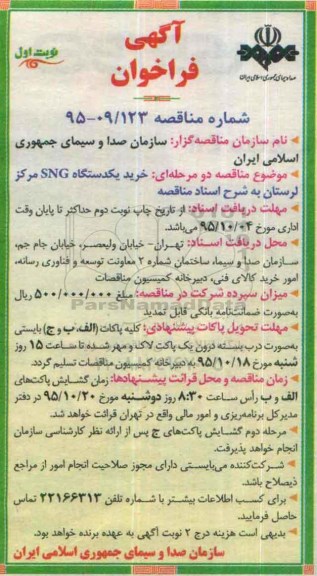 آگهی
فراخوان
نوبت اول
صدا و سیمای جمهوری اسلامی ایران
شماره مناقصه ۹۵-۰۹/۱۲۳
نام سازمان مناقصه‌گزار: سازمان صدا و سیمای جمهوری
اسلامی ایران
موضوع مناقصه دو مرحله‌ای: خرید یکدستگاه SNG مرکز
لرستان به شرح اسناد مناقصه
مهلت دریافت اسناد: از تاریخ چاپ نوبت دوم حداکثر تا پایان وقت
اداری مورخ ۹۵/۱۰/۰۴ می‌باشد.
محل دریافت اسناد: تهران- خیابان ولیعصر، خیابان جام جم،
سازمان صدا و سیما، ساختمان شماره ۲ معاونت توسعه و فناوری رسانه،
امور خرید کالای فنی، دبیرخانه کمیسیون مناقصات
میزان سپرده شرکت در مناقصه: مبلغ ۵۰۰/۰۰۰/۰۰۰ ریال
به‌صورت ضمانت‌نامه بانکی قابل تمدید
مهلت تحویل پاکات پیشنهادی: کلیه پاکات (الف، ب و ج) بایستی
به‌صورت درب بسته درون یک پاکت لاک و مهر شده تا ساعت ۱۵ روز
شنبه مورخ ۹۵/۱۰/۱۸ به دبیرخانه کمیسیون مناقصات تسلیم گردد.
زمان مناقصه و محل قرائت پیشنهادها: زمان گشایش پاکت‌های
الف و ب رأس ساعت ۸:۳۰ روز دوشنبه مورخ ۹۵/۱۰/۲۰ در دفتر
مدیرکل برنامه‌ریزی و امور مالی واقع در تهران قرائت خواهد شد.
مرحله دوم گشایش پاکت‌های ج پس از ارائه نظر کارشناسی سازمان
انجام خواهد پذیرفت.
شرکت‌کننده می‌بایستی دارای مجوز صلاحیت انجام امور از مراجع
ذیصلاح باشد.
برای کسب اطلاعات بیشتر با شماره تلفن ۲۲۱۶۶۳۱۳ تماس
حاصل فرمایید.
بدیهی است هزینه درج ۲ نوبت آگهی به عهده برنده خواهد بود.
سازمان صدا و سیمای جمهوری اسلامی ایران